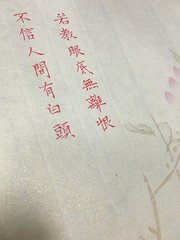 若教眼底無離恨
不信人間有白頭